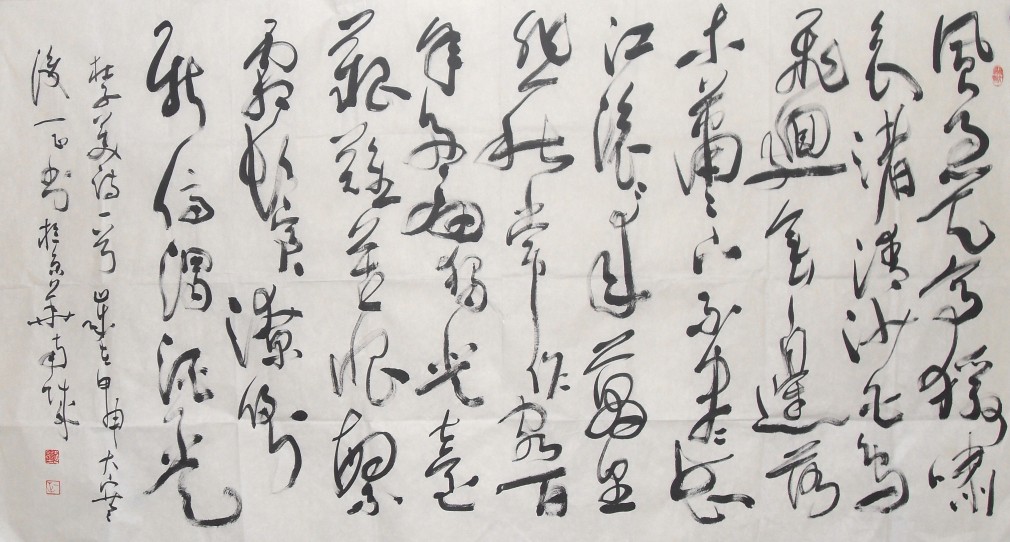 風急天高猿嘯
哀渚清沙白鳥
飛迴無邊落
木蕭〻下不盡長
江滾〻來萬里
悲秋常作客百
年多病獨登臺
艱難苦恨繁
霜鬢潦倒
新停濁酒杯
杜子美詩一首 歲在甲申大寒
後一日書於京華南城